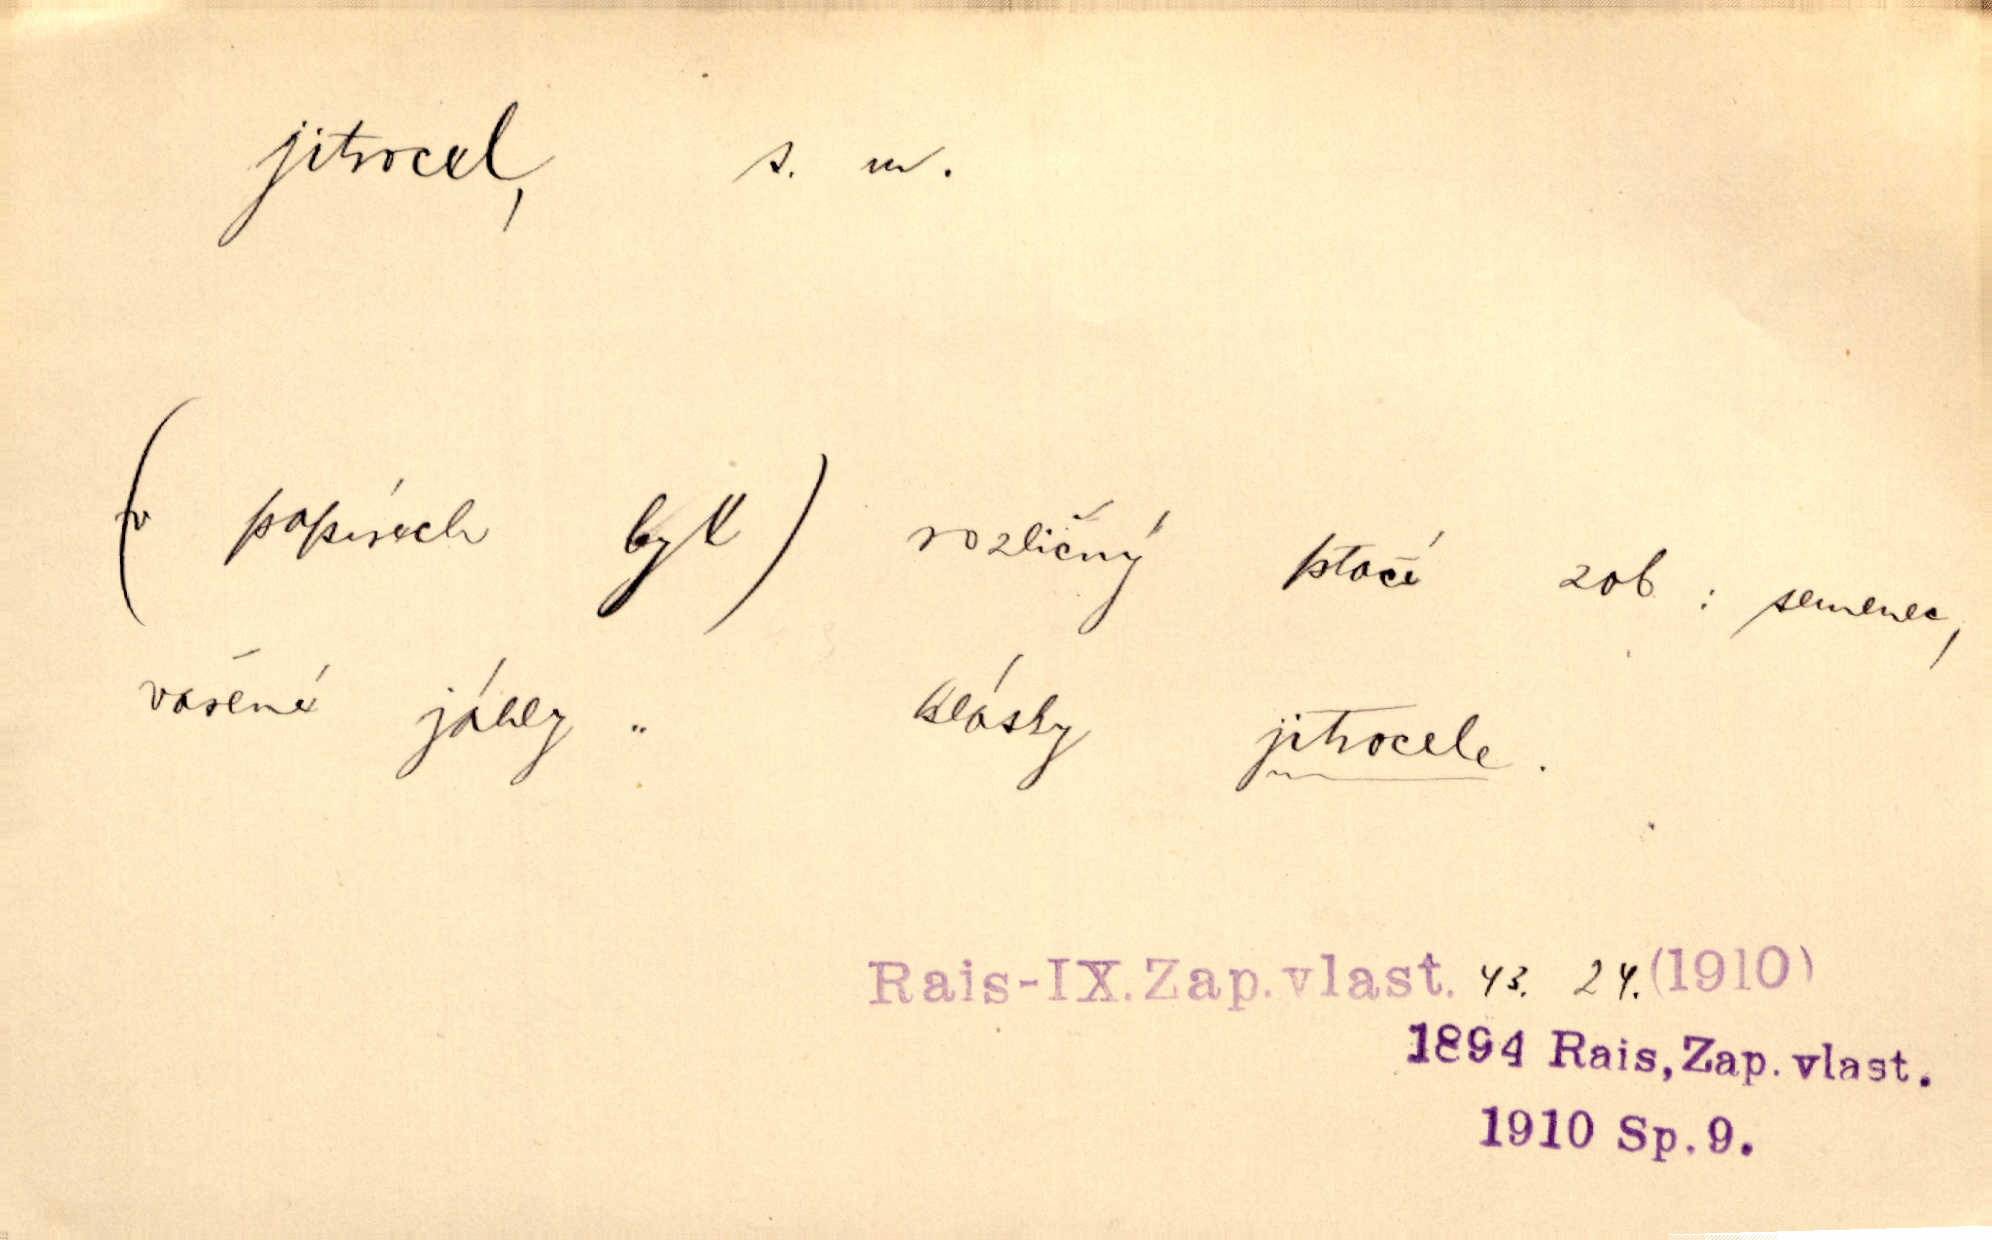 jitrocel, s. m.
(v papírech byl) rozličný ptačí zob: semenec,
vařené jáhly .. klásky jitrocele.
Rais-IX. Zap. vlast. 43. 24. (1910)
1894 Rais, Zap. vlast.
1910 Sp. 9.